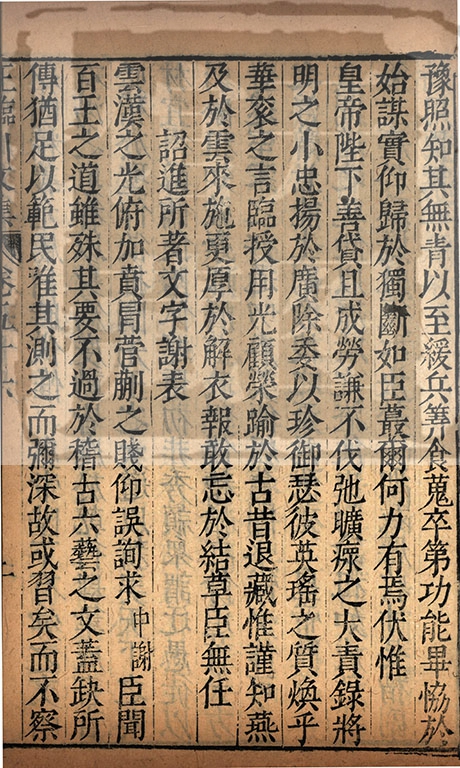 豫照知其無眚以至緩兵筭食蒐卒第功能畢恊於
始謀實仰歸於獨斷如臣蕞爾何力有焉伏惟
皇帝陛下善貸且成勞謙不伐弛曠瘝之大責錄將
明之小忠揚於廣除委以珍御瑟彼英瑤之質煥乎
華衮之言臨授用光顧榮踰於古昔退藏惟謹知燕
及於雲來施更厚於解衣報敢忘於結草臣無任
詔進所著文字謝表
雲漢之光俯加賁冒菅蒯之賤仰誤詢求中謝臣聞
百王之道雖殊其要不過於稽古六藝之文蓋缺所
傳猶足以範民惟其測之而彌深故或習矣而不察
王臨川文集 卷五十六